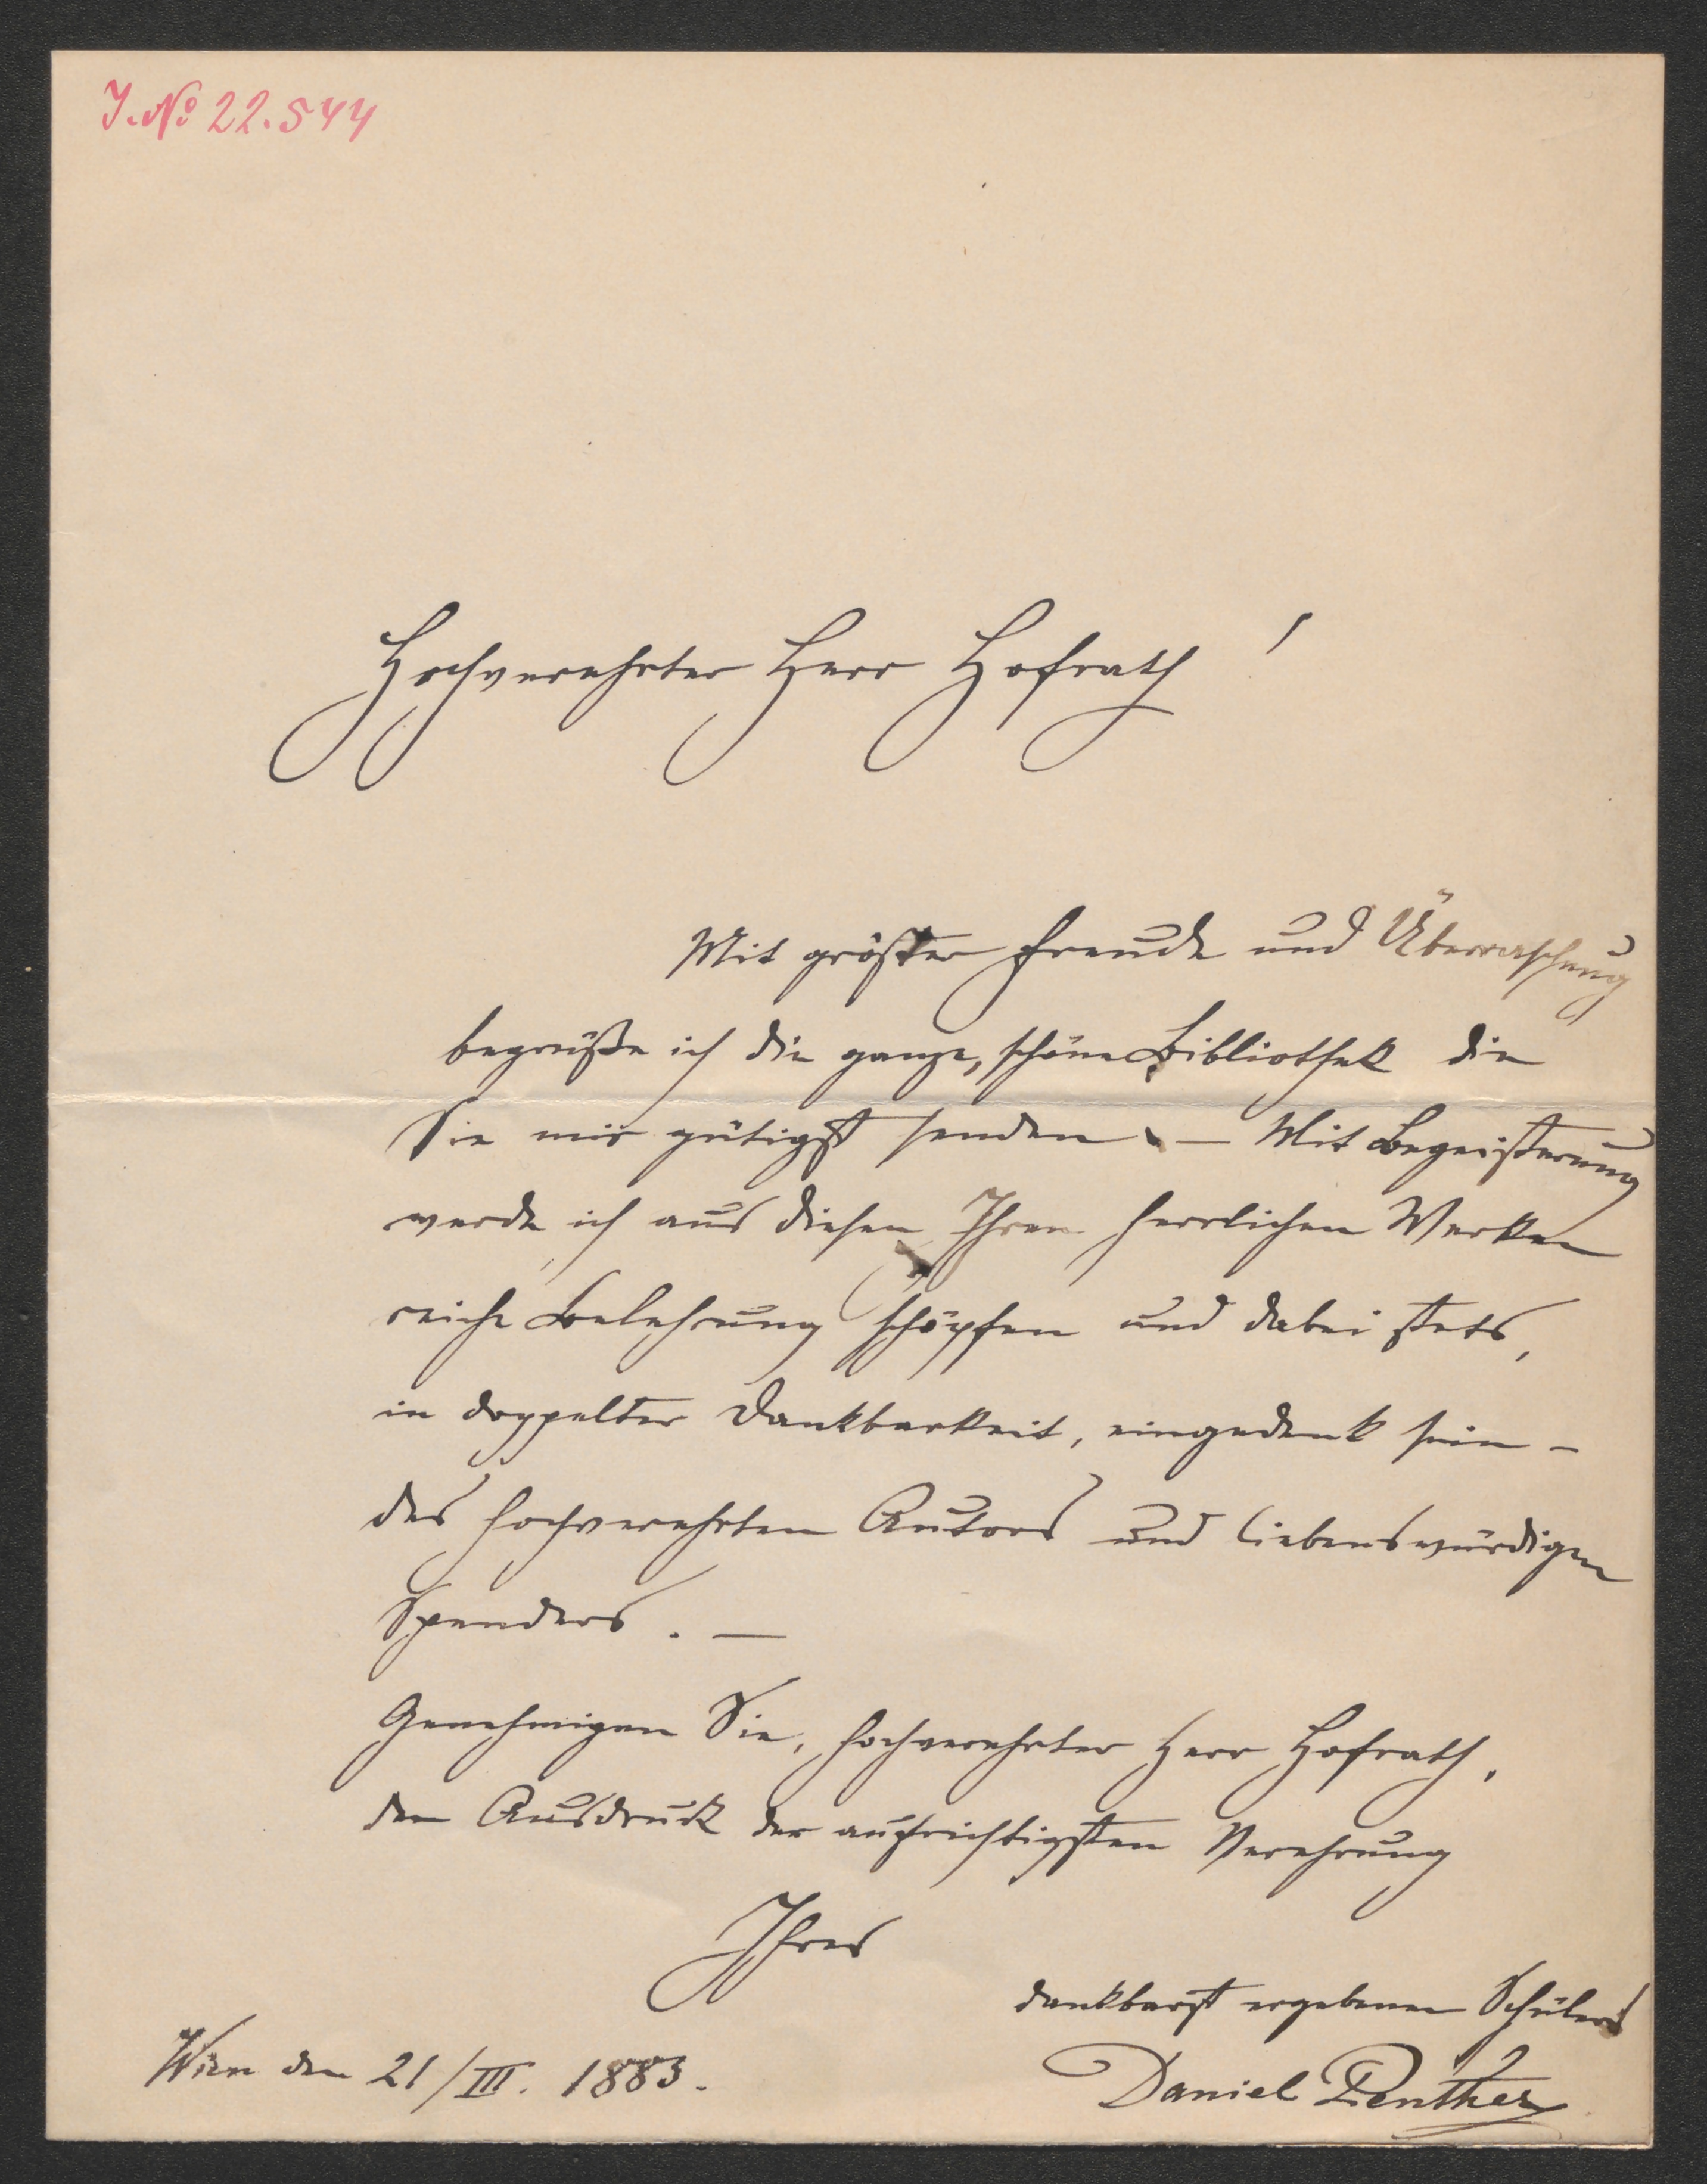 J. No 22.544
Hochverehrter Herr Hofrath!
Mit größter Freude und Überraschung
begrüße ich die ganze, schöne Bibliothek die
Sie mir gütigst senden. — Mit Begeisterung
werde ich aus diesen Ihren herrlichen Werken
reiche Belehrung schöpfen und dabei stets,
in doppelter Dankbarkeit, eingedenk sein –
des hochverehrten Autors und liebenswürdigen
Spenders. —
Genehmigen Sie, hochverehrter Herr Hofrath,
den Ausdruck der aufrichtigsten Verehrung
Ihres
dankbarst ergebenen Schülers
Wien den 21/III. 1883.
Daniel Penther